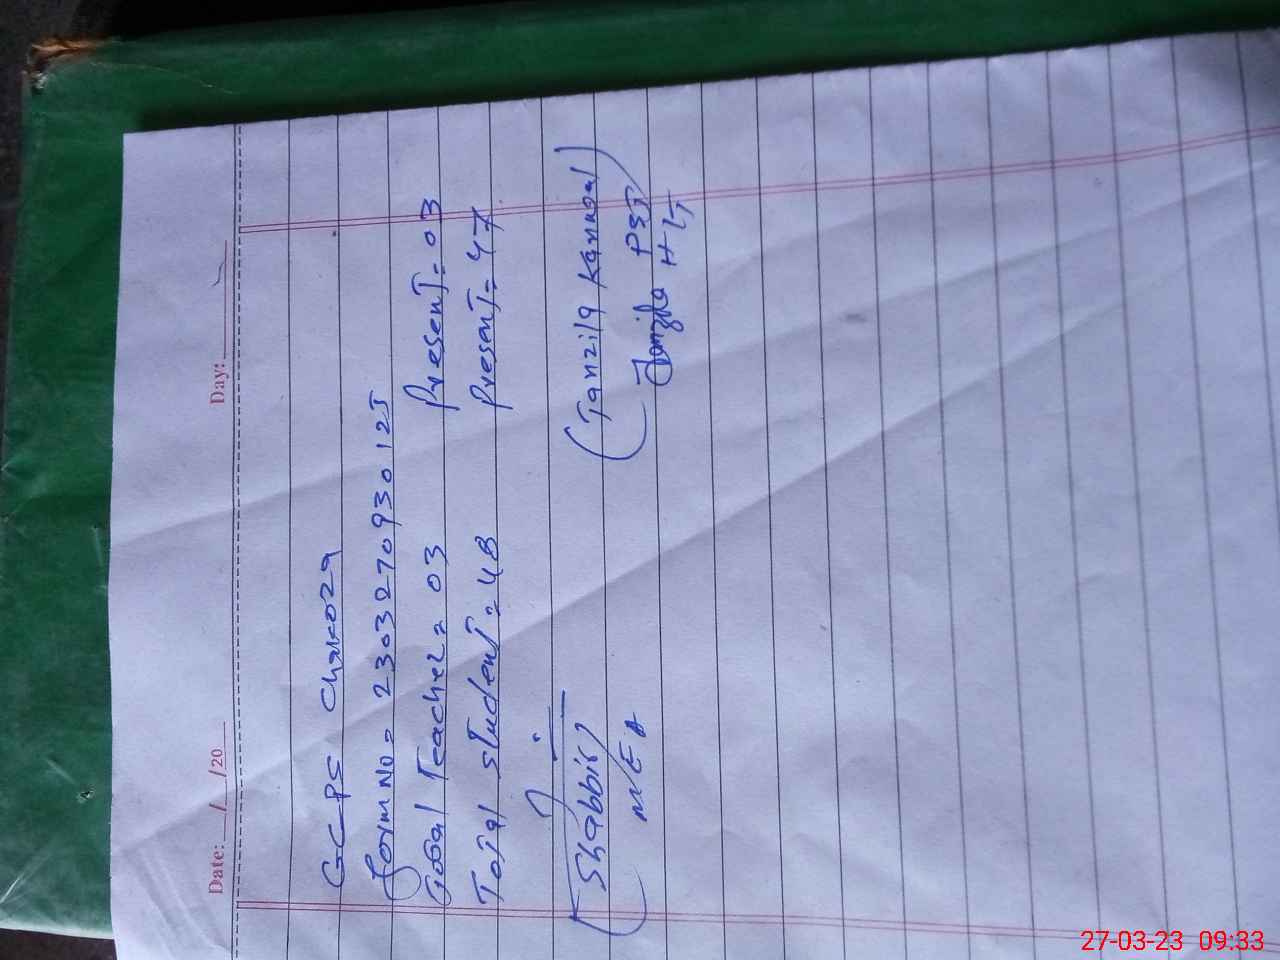 Date: __/__/20__ Day: ______
GCPS Chakoza
Form No = 230327093012J
Total Teacher = 03 Present = 03
Total student = 48 Present = 47
(Shabbir) (Tanzila Kanwal)
MEA Tanzila PST
H/T
27-03-23 09:33